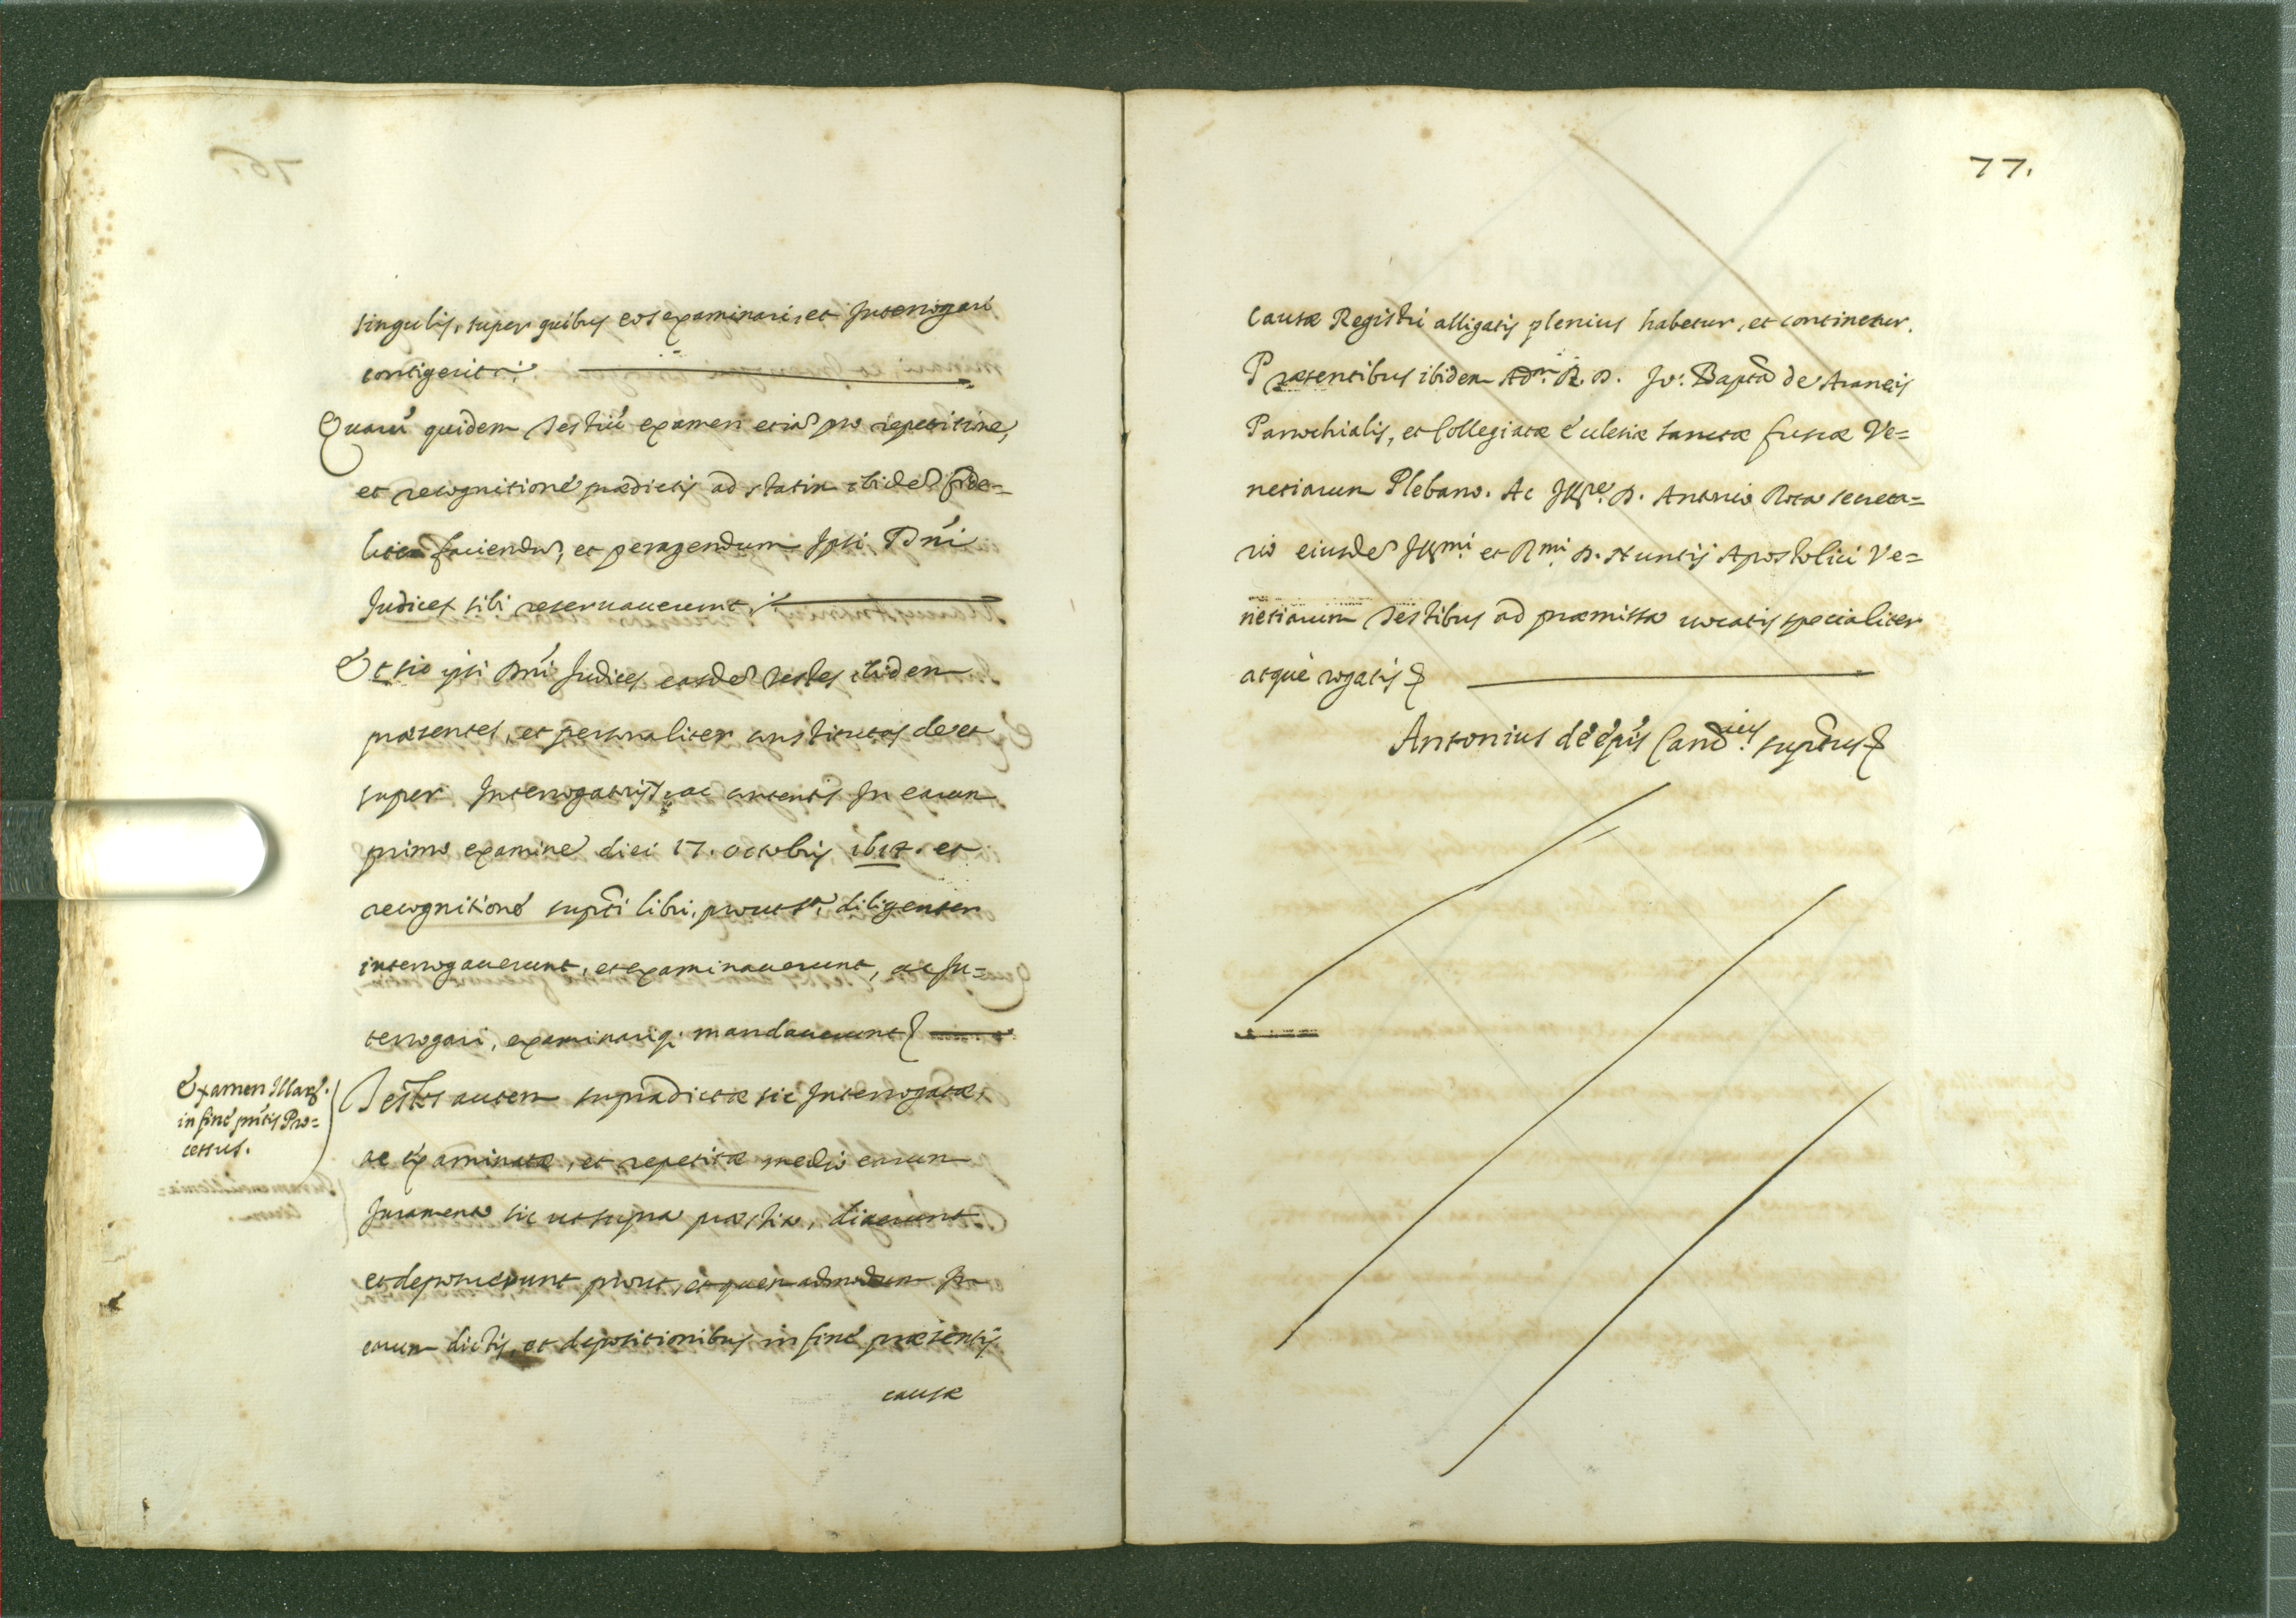 singulis, super quibus eos examinari, et Interrogari
contigerit.
Quarú quidem Testiú examen etiã pro repetitione,
et recognitioné prædictis ad statim ibidẽ fide=
liter faciendũ, et peragendum Ipsi Dńi
Judices sibi reseruauerunt.
Et sic ipsi Dńi Judices easdẽ Testes ibidem
præsentes, et personaliter constitutas de et
super Interrogatorijs, ac contentis In earum
primo examine diei 17. octobris 1617. et
recognitioné supr̃ti libri, prout sᵃ, diligenter
interrogauerunt, et examinauerunt, ac In=
terrogari, examinariq; mandauerunt
Examen Illarũ.
in finé pńtis Pro=
cessus.
Testes autem supradictæ sic Interrogatæ,
ac examinatæ, et repetitæ medio earum
Juramento sic ut supra præstito, dixerunt
et deposuerunt prout, et quem admodum In
earum dictis, et depositionibus in finé præsentis
causæ
77.
Causæ Registri alligatis plenius habetur, et continetur.
Præsentibus ibidem Adm. R. D. Jo: Bapta de Araneis
Parrochialis, et Collegiatæ Ecclesiæ Sanctæ Fuscæ Ve=
netiarum Plebano. Ac Illre. D. Antonio Rota secreta=
rio eiusdẽ Illmi. et Rmi. D. Nuntij Apostolici Ve=
netiarum Testibus ad præmissa uocatis specialiter
atque rogatis
Antonius dé épis Cancrius suprtus